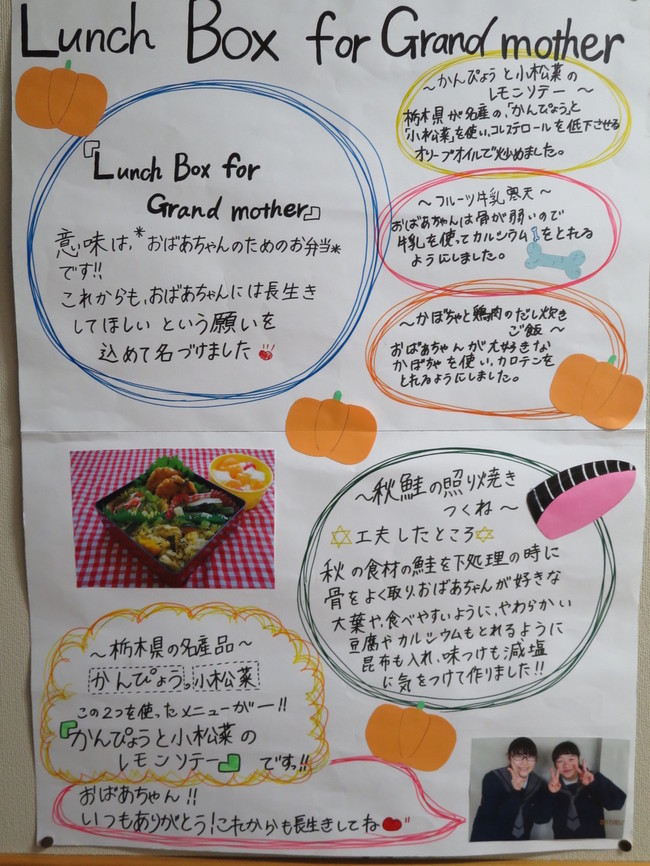 Lunch Box for Grand mother
『Lunch Box for
Grand mother』
意味は、*おばあちゃんのためのお弁当*
です!!
これからも、おばあちゃんには長生き
してほしい という願いを
込めて名づけました
～かんぴょうと小松菜の
レモンソテー～
栃木県が名産の、「かんぴょう」と
「小松菜」を使い、コレステロールを低下させる
オリーブオイルで炒めました。
～フルーツ牛乳寒天～
おばあちゃんは骨が弱いので
牛乳を使ってカルシウムをとれる
ようにしました。
～かぼちゃと鶏肉のだし炊き
ご飯～
おばあちゃんが大好きな
かぼちゃを使い、カロテンを
とれるようにしました。
～秋鮭の照り焼き
つくね～
✡工夫したところ✡
秋の食材の鮭を下処理の時に
骨をよく取り、おばあちゃんが好きな
大葉や、食べやすいように、やわらかい
豆腐やカルシウムもとれるように
昆布も入れ、味つけも減塩
に気をつけて作りました!!
～栃木県の名産品～
かんぴょう 小松菜
この2つを使ったメニューがー!!
『かんぴょうと小松菜の
レモンソテー』ですっ!!
おばあちゃん!!
いつもありがとう!これからも長生きしてね